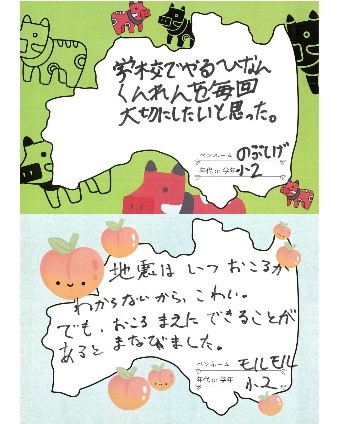 学校でやるひなん
くんれんを毎回
大切にしたいと思った。
ペンネーム のぶしげ
年代 or 学年 小2
地震は いつ おころか
わからないから、こわい。
でも、おころ まえに できることが
あると まなびました。
ペンネーム モルモル
年代 or 学年 小2